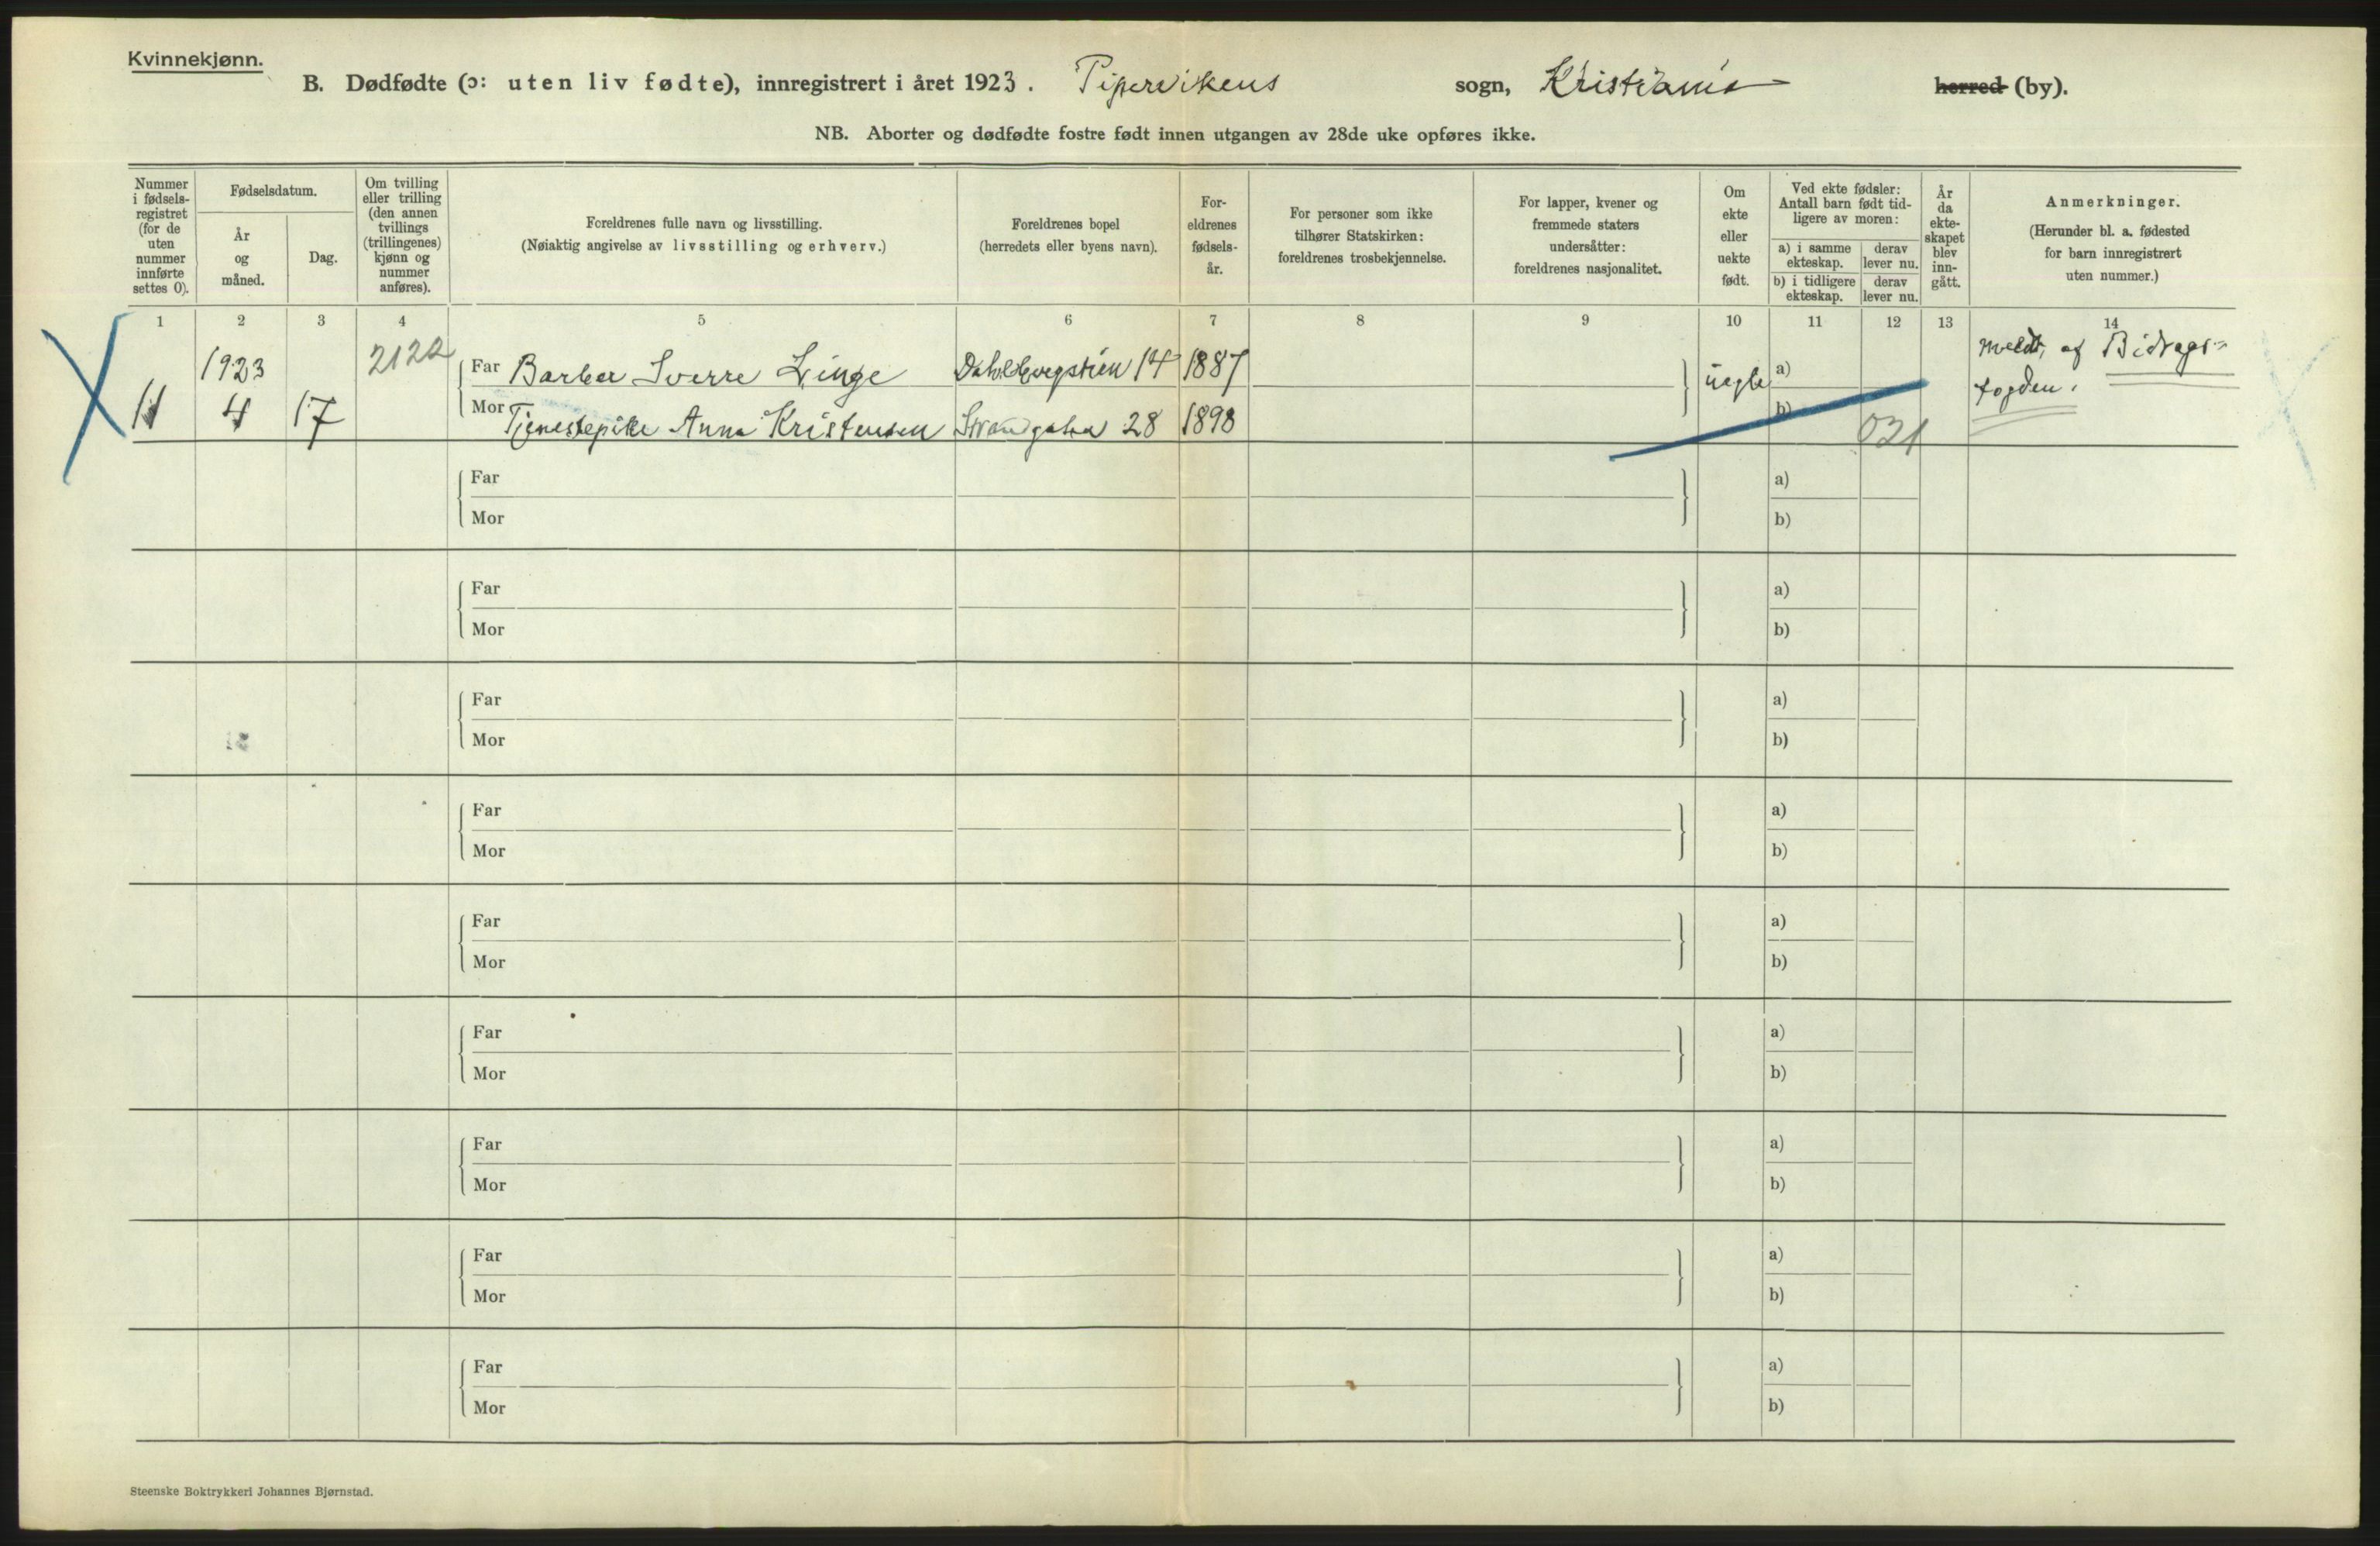 Kvinnekjønn.
B. Dødfødte (ɔ: uten liv fødte), innregistrert i året 1923. Pipervikens sogn, Kristiania herred (by).
NB. Aborter og dødfødte fostre født innen utgangen av 28de uke opføres ikke.
Nummer
i fødsels-
registret
(for de
uten
nummer
innførte
settes 0).
Fødselsdatum.
År
og
måned.
Dag.
Om tvilling
eller trilling
(den annen
tvillings
(trillingenes)
kjønn og
nummer
anføres).
Foreldrenes fulle navn og livsstilling.
(Nøiaktig angivelse av livsstilling og erhverv.)
Foreldrenes bopel
(herredets eller byens navn).
For-
eldrenes
fødsels-
år.
For personer som ikke
tilhører Statskirken:
foreldrenes trosbekjennelse.
For lapper, kvener og
fremmede staters
undersåtter:
foreldrenes nasjonalitet.
Om
ekte
eller
uekte
født.
Ved ekte fødsler:
Antall barn født tid-
ligere av moren:
a) i samme
ekteskap.
derav
lever nu.
b) i tidligere
ekteskap.
derav
lever nu.
År
da
ekte-
skapet
blev
inn-
gått.
Anmerkninger.
(Herunder bl. a. fødested
for barn innregistrert
uten nummer.)
1 2 3 4 5 6 7 8 9 10 11 12 13 14
1923 2122 Far Barber Sverre Linge 14 1887 a) Meldt af Bidrags-
11 4 17 Mor Tjenestepike Anna Kristensen 28 1898 b) fogden.
031
Far a)
Mor b)
Far a)
Mor b)
Far a)
Mor b)
Far a)
Mor b)
Far a)
Mor b)
Far a)
Mor b)
Far a)
Mor b)
Far a)
Mor b)
Far a)
Mor b)
Steenske Boktrykkeri Johannes Bjørnstad.